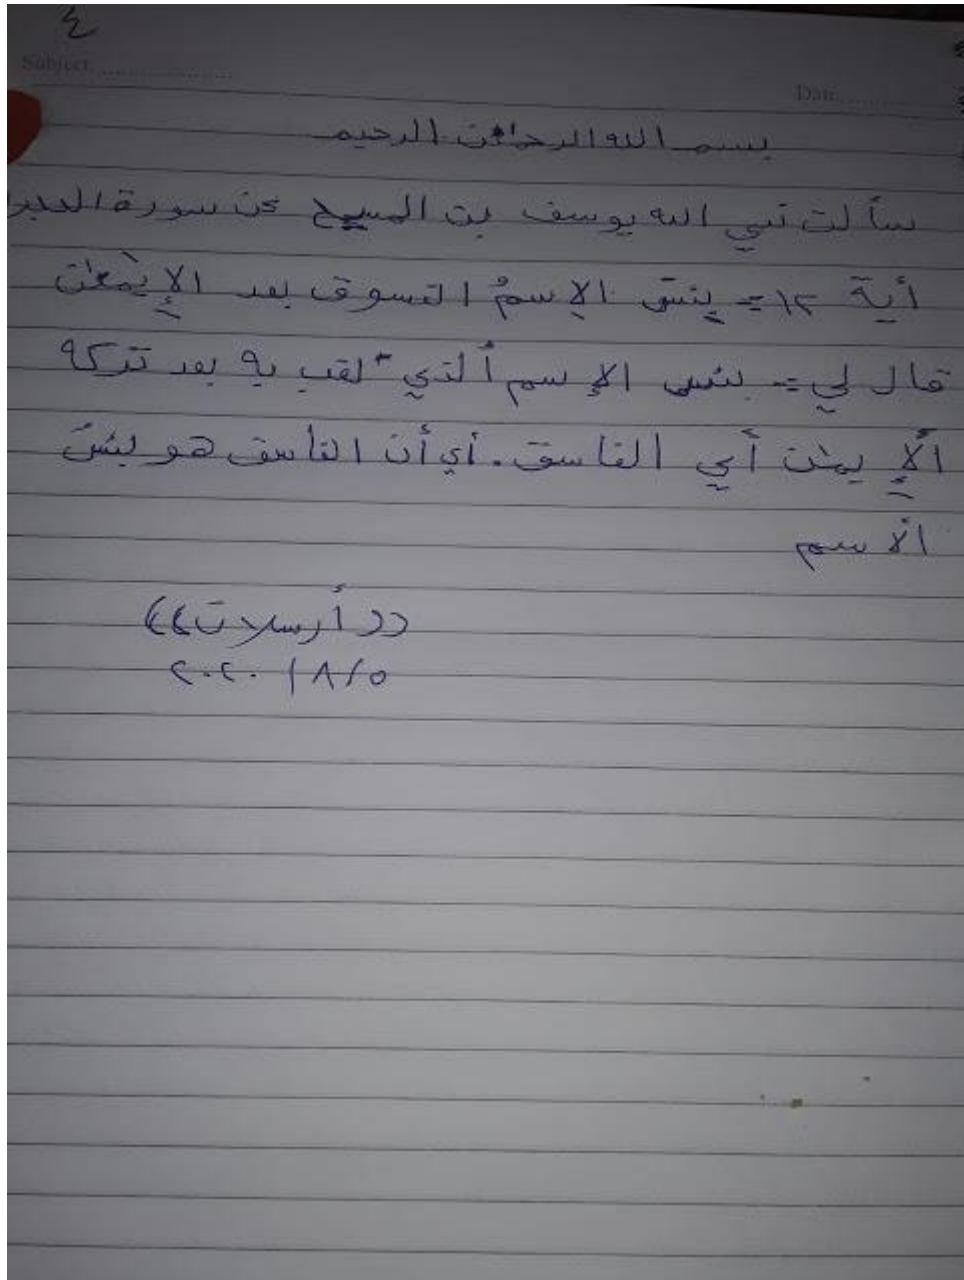 ٤
Subject: ....................
Date: ............
بسم الله الرحمٰن الرحيم
سألت نبي الله يوسف بن المسيح عن سورة الحجر
أية ١٢ = بئسَ الإسمُ الفسوق بعد الإيمٰن
قال لي = بئس الإسم ألذي لقب به بعد تركه
ألإيمٰن أي الفاسق. أي أن الفاسق هو بئسَ
ألاسم
((أرسلان))
٢٠٢٠/٨/٥